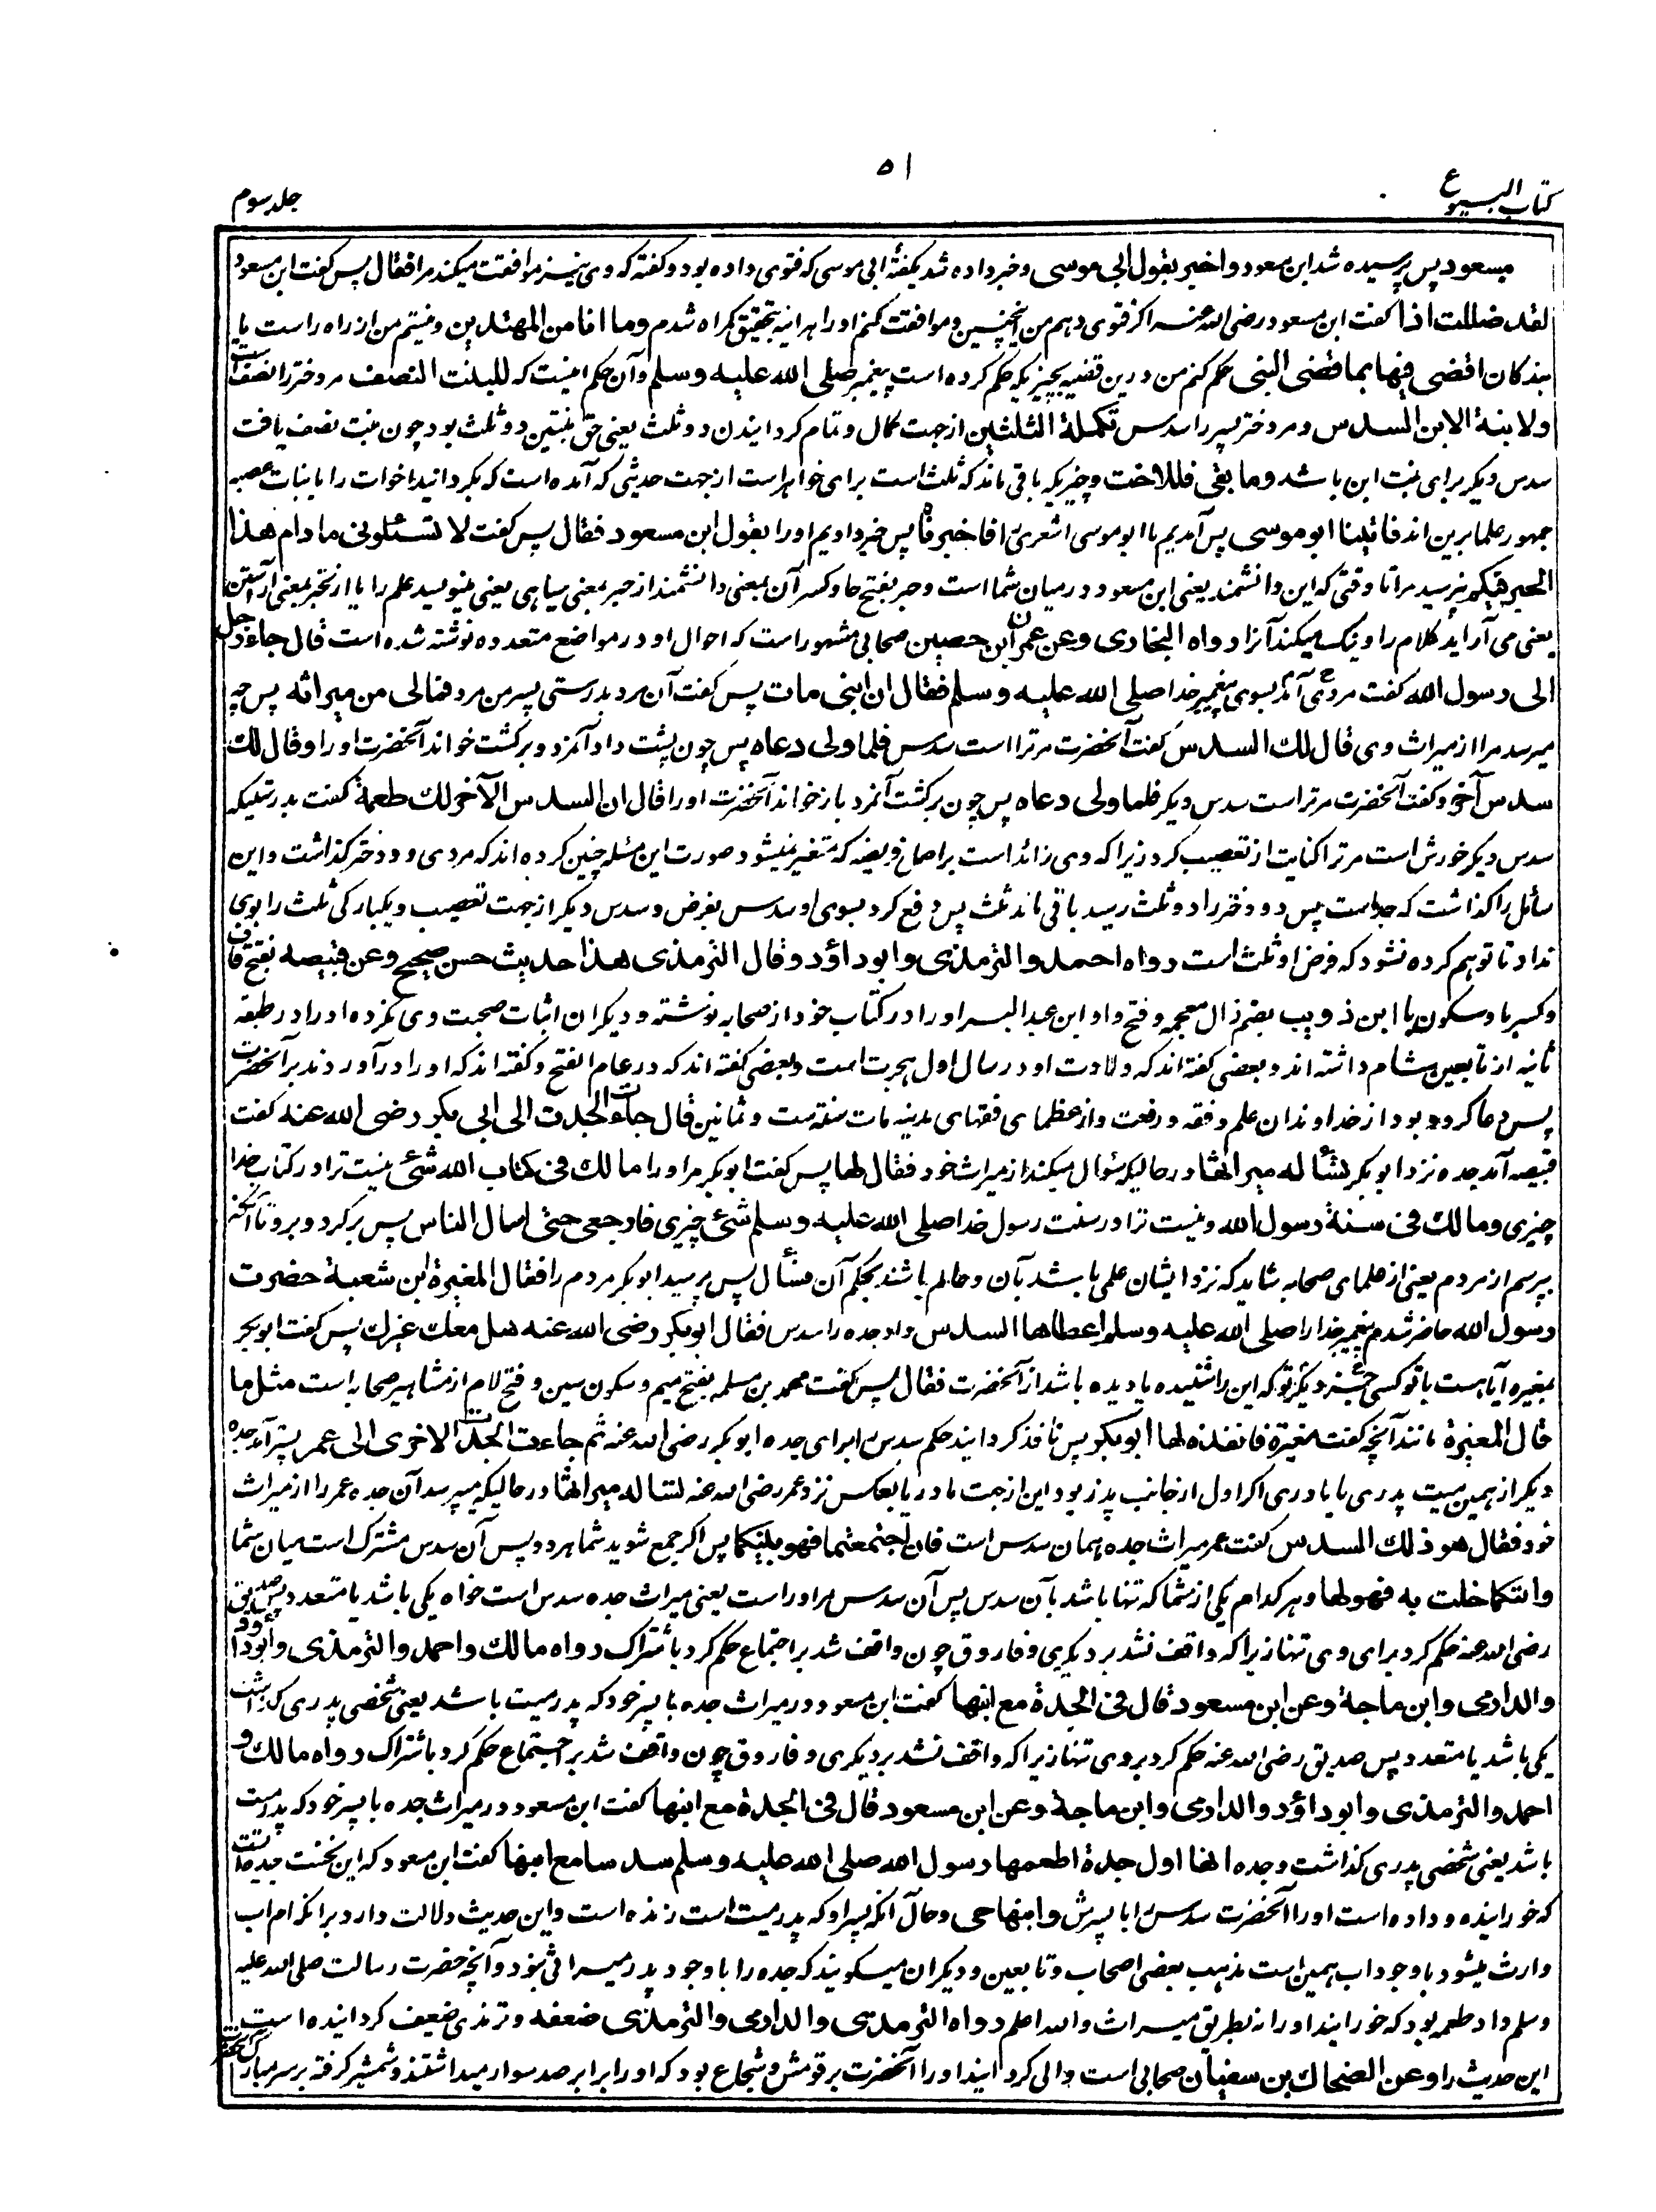 ۵۱
کتاب البیوع
جلد سوم
مسعود پس پرسیده شد ابن مسعود و اخبر بقول ابی موسی و خبر داده شد بگفتۀ ابی موسی که فتوی داده بود و گفته که وی نیز موافقت میکند مرا فقال پس گفت ابن مسعود
لقد ضللت اذا گفت ابن مسعود رضی الله عنه اگر فتوی دهم من اینچنین و موافقت کنم او را هر آینه بتحقیق گمراه شدم وما انا من المهتدین و نیستم من از راه راست یا
بندگان اقضی فیها بما قضی النبی حکم کنم من درین قضیه بچیزیکه حکم کرده است پیغمبر صلی الله علیه وسلم و آن حکم اینست که للبنت النصف مر دختر را نصف است
ولابنة الابن السدس و مر دختر پسر را سدس تکملة الثلثین از جهت کمال و تمام گردانیدن دو ثلث یعنی حق بنتین دو ثلث بود چون بنت نصف یافت
سدس دیگر برای بنت ابن باشد وما بقی فللاخت و چیزیکه باقی ماند که ثلث است برای خواهر است از جهت حدیثی که آمده است که بگردانید اخوات را با بنات عصبه
جمهور علما برین اند فاتینا ابو موسی پس آمدیم ما ابو موسی اشعری را فاخبرناه پس خبر دادیم او را بقول ابن مسعود فقال پس گفت لا تسئلونی ما دام هذا
الحبر فیکم نپرسید مرا تا وقتی که این دانشمند یعنی ابن مسعود در میان شما است و حبر بفتح حا و کسر آن بمعنی دانشمند از حبر بمعنی سیاهی یعنی مینویسد علم را یا از تحبر بمعنی آراستن
یعنی می آراید کلام را و نیک میکند آنرا رواه البخاری وعن عمران ابن حصین صحابی مشهور است که احوال او در مواضع متعدده نوشته شده است قال جاء رجل
الی رسول الله گفت مردی آمد بسوی پیغمبر خدا صلی الله علیه وسلم فقال ان ابنی مات پس گفت آن مرد بدرستی پسر من مرد فمالی من میراثه پس چه
میرسد مرا از میراث وی قال لك السدس گفت آنحضرت مر ترا است سدس فلما ولی دعاه پس چون پشت داد آنمرد و برگشت خواند آنحضرت او را وقال لك
سدس آخر و گفت آنحضرت مر تراست سدس دیگر فلما ولی دعاه پس چون برگشت آنمرد باز خواند آنحضرت او را قال ان السدس الآخر لك طعمة گفت بدرستیکه
سدس دیگر خورش است مر ترا کنایت از تعصیب کرد زیرا که وی زائد است بر اصل فریضه که متغیر نمیشود صورت این مسئله چنین کرده اند که مردی دو دختر گذاشت و این
سائل را گذاشت که جد است پس دو دختر را دو ثلث رسید باقی ماند ثلث پس دفع کرد بسوی او سدس بفرض و سدس دیگر از جهت تعصیب و یکبارگی ثلث را بوی
نداد تا توهم کرده نشود که فرض او ثلث است رواه احمد والترمذی وابو داؤد وقال الترمذی هذا حدیث حسن صحیح وعن قبیصه بفتح قاف
و کسر با و سکون یا ابن ذویب بضم ذال معجمه و فتح واو ابن عبد البر او را در کتاب خود از صحابه نوشته و دیگران اثبات صحبت وی نکرده او را در طبقه
ثانیه از تابعین شام داشته اند و بعضی گفته اند که ولادت او در سال اول هجرت است و بعضی گفته اند که در عام الفتح و گفته اند که او را در آوردند بر آنحضرت
پس دعا کرد و بود از خداوندان علم و فقه و رفعت و از عظمای فقهای مدینه مات سنة ست و ثمانین قال جاءت الجدة الی ابی بکر رضی الله عنه گفت
قبیصه آمد جده نزد ابو بکر تسأله میراثها در حالیکه سؤال میکند از میراث خود فقال لها پس گفت ابو بکر مر او را مالك فی کتاب الله شئ نیست ترا در کتاب خدا
چیزی ومالك فی سنة رسول الله و نیست ترا در سنت رسول خدا صلی الله علیه وسلم شئ چیزی فارجعی حتی اسال الناس پس برگرد و برو تا آنکه
بپرسم از مردم یعنی از علمای صحابه شاید که نزد ایشان علمی باشد بآن و عالم باشند بحکم آن فسأل پس پرسید ابو بکر مردم را فقال المغیرة ابن شعبة حضرت
رسول الله حاضر شدم پیغمبر خدا را صلی الله علیه وسلم اعطاها السدس داد جده را سدس فقال ابو بکر رضی الله عنه هل معك غیرك پس گفت ابو بکر
بمغیره آیا هست با تو کسی جز دیگر تو که این را شنیده یا دیده باشد از آنحضرت فقال پس گفت محمد بن مسلمه بفتح میم و سکون سین و فتح لام از مشاهیر صحابه است مثل ما
قال المغیرة مانند آنچه گفت مغیره فانفذه لها ابو بکر پس نافذ گردانید حکم سدس را برای جده ابو بکر رضی الله عنه ثم جاءت الجدة الاخری الی عمر پستر آمد جده
دیگر از همین میت پدری یا مادری اگر اول از جانب پدر بود این از جهت مادر یا بعکس نزد عمر رضی الله عنه تساله میراثها در حالیکه میپرسد آن جده عمر را از میراث
خود فقال هو ذلك السدس گفت عمر میراث جده همان سدس است فان اجتمعتما فهو بینکما پس اگر جمع شوید شما هر دو پس آن سدس مشترک است میان شما
وایتکما خلت به فهو لها و هر کدام یکی از شما که تنها باشد بآن سدس پس آن سدس مر او راست یعنی میراث جده سدس است خواه یکی باشد یا متعدد پس صدیق
رضی الله عنه حکم کرد برای وی تنها زیرا که واقف نشد بر دیگری و فاروق چون واقف شد بر اجتماع حکم کرد باشتراک رواه مالك واحمد والترمذی وابو داؤد
والدارمی وابن ماجة وعن ابن مسعود قال فی الجدة مع ابنها گفت ابن مسعود در میراث جده با پسر خود که پدر میت باشد یعنی شخصی پدری گذاشت
یکی باشد یا متعدد پس صدیق رضی الله عنه حکم کرد بروی تنها زیرا که واقف نشد بر دیگری و فاروق چون واقف شد بر اجتماع حکم کرد باشتراک رواه مالك و
احمد والترمذی وابو داؤد والدارمی وابن ماجة وعن ابن مسعود قال فی الجدة مع ابنها گفت ابن مسعود در میراث جده با پسر خود که پدر میت
باشد یعنی شخصی پدری گذاشت و جده انها اول جدة اطعمها رسول الله صلی الله علیه وسلم سدسا مع ابنها گفت ابن مسعود که این نخست جده است
که خورانیده و داده است او را آنحضرت سدس را با پسرش وابنها حی و حال آنکه پسر او که پدر میت است زنده است و این حدیث دلالت دارد بر آنکه ام اب
وارث میشود با وجود اب همین است مذهب بعضی اصحاب و تابعین و دیگران میگویند که جده را با وجود پدر میراثی نبود و آنچه حضرت رسالت صلی الله علیه
وسلم داد طعمه بود که خورانید او را نه بطریق میراث والله اعلم رواه الترمذی والدارمی والترمذی ضعفه و ترمذی ضعیف گردانیده است
این حدیث را وعن الضحاك بن سفیان صحابی است والی گردانید او را آنحضرت بر قومش و شجاع بود که او را برابر صد سوار میداشتند و شمشیر گرفته بر سر مبارک